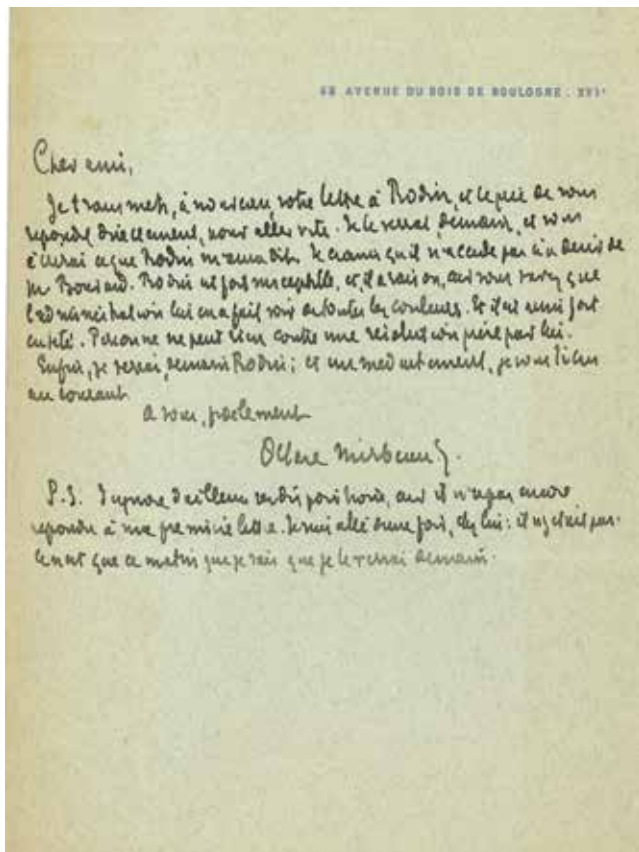 68 AVENUE DU BOIS DE BOULOGNE . XVIe
Cher ami,
Je transmets, à nouveau, votre lettre à Rodin, et le prie de vous
répondre directement, pour aller vite. Je le verrai demain, et vous
écrirai ce que Rodin m'aura dit. Je crains qu'il n'accède pas au désir de
Mr Rodin est fort susceptible, et, il a raison, car vous savez que
l'administration lui en a fait voir de toutes les couleurs. Et il est aussi fort
entêté. Personne ne peut rien contre une résolution prise par lui.
Enfin, je verrai, demain Rodin ; et immédiatement, je vous tiens
au courant
à vous,
Octave Mirbeau
P.S. J'ignore d'ailleurs car il n'a pas encore
répondu à ma première lettre. Je suis allé deux fois, chez lui : il n'y était pas.
Ce n'est que ce matin que je sais que je le verrai demain.